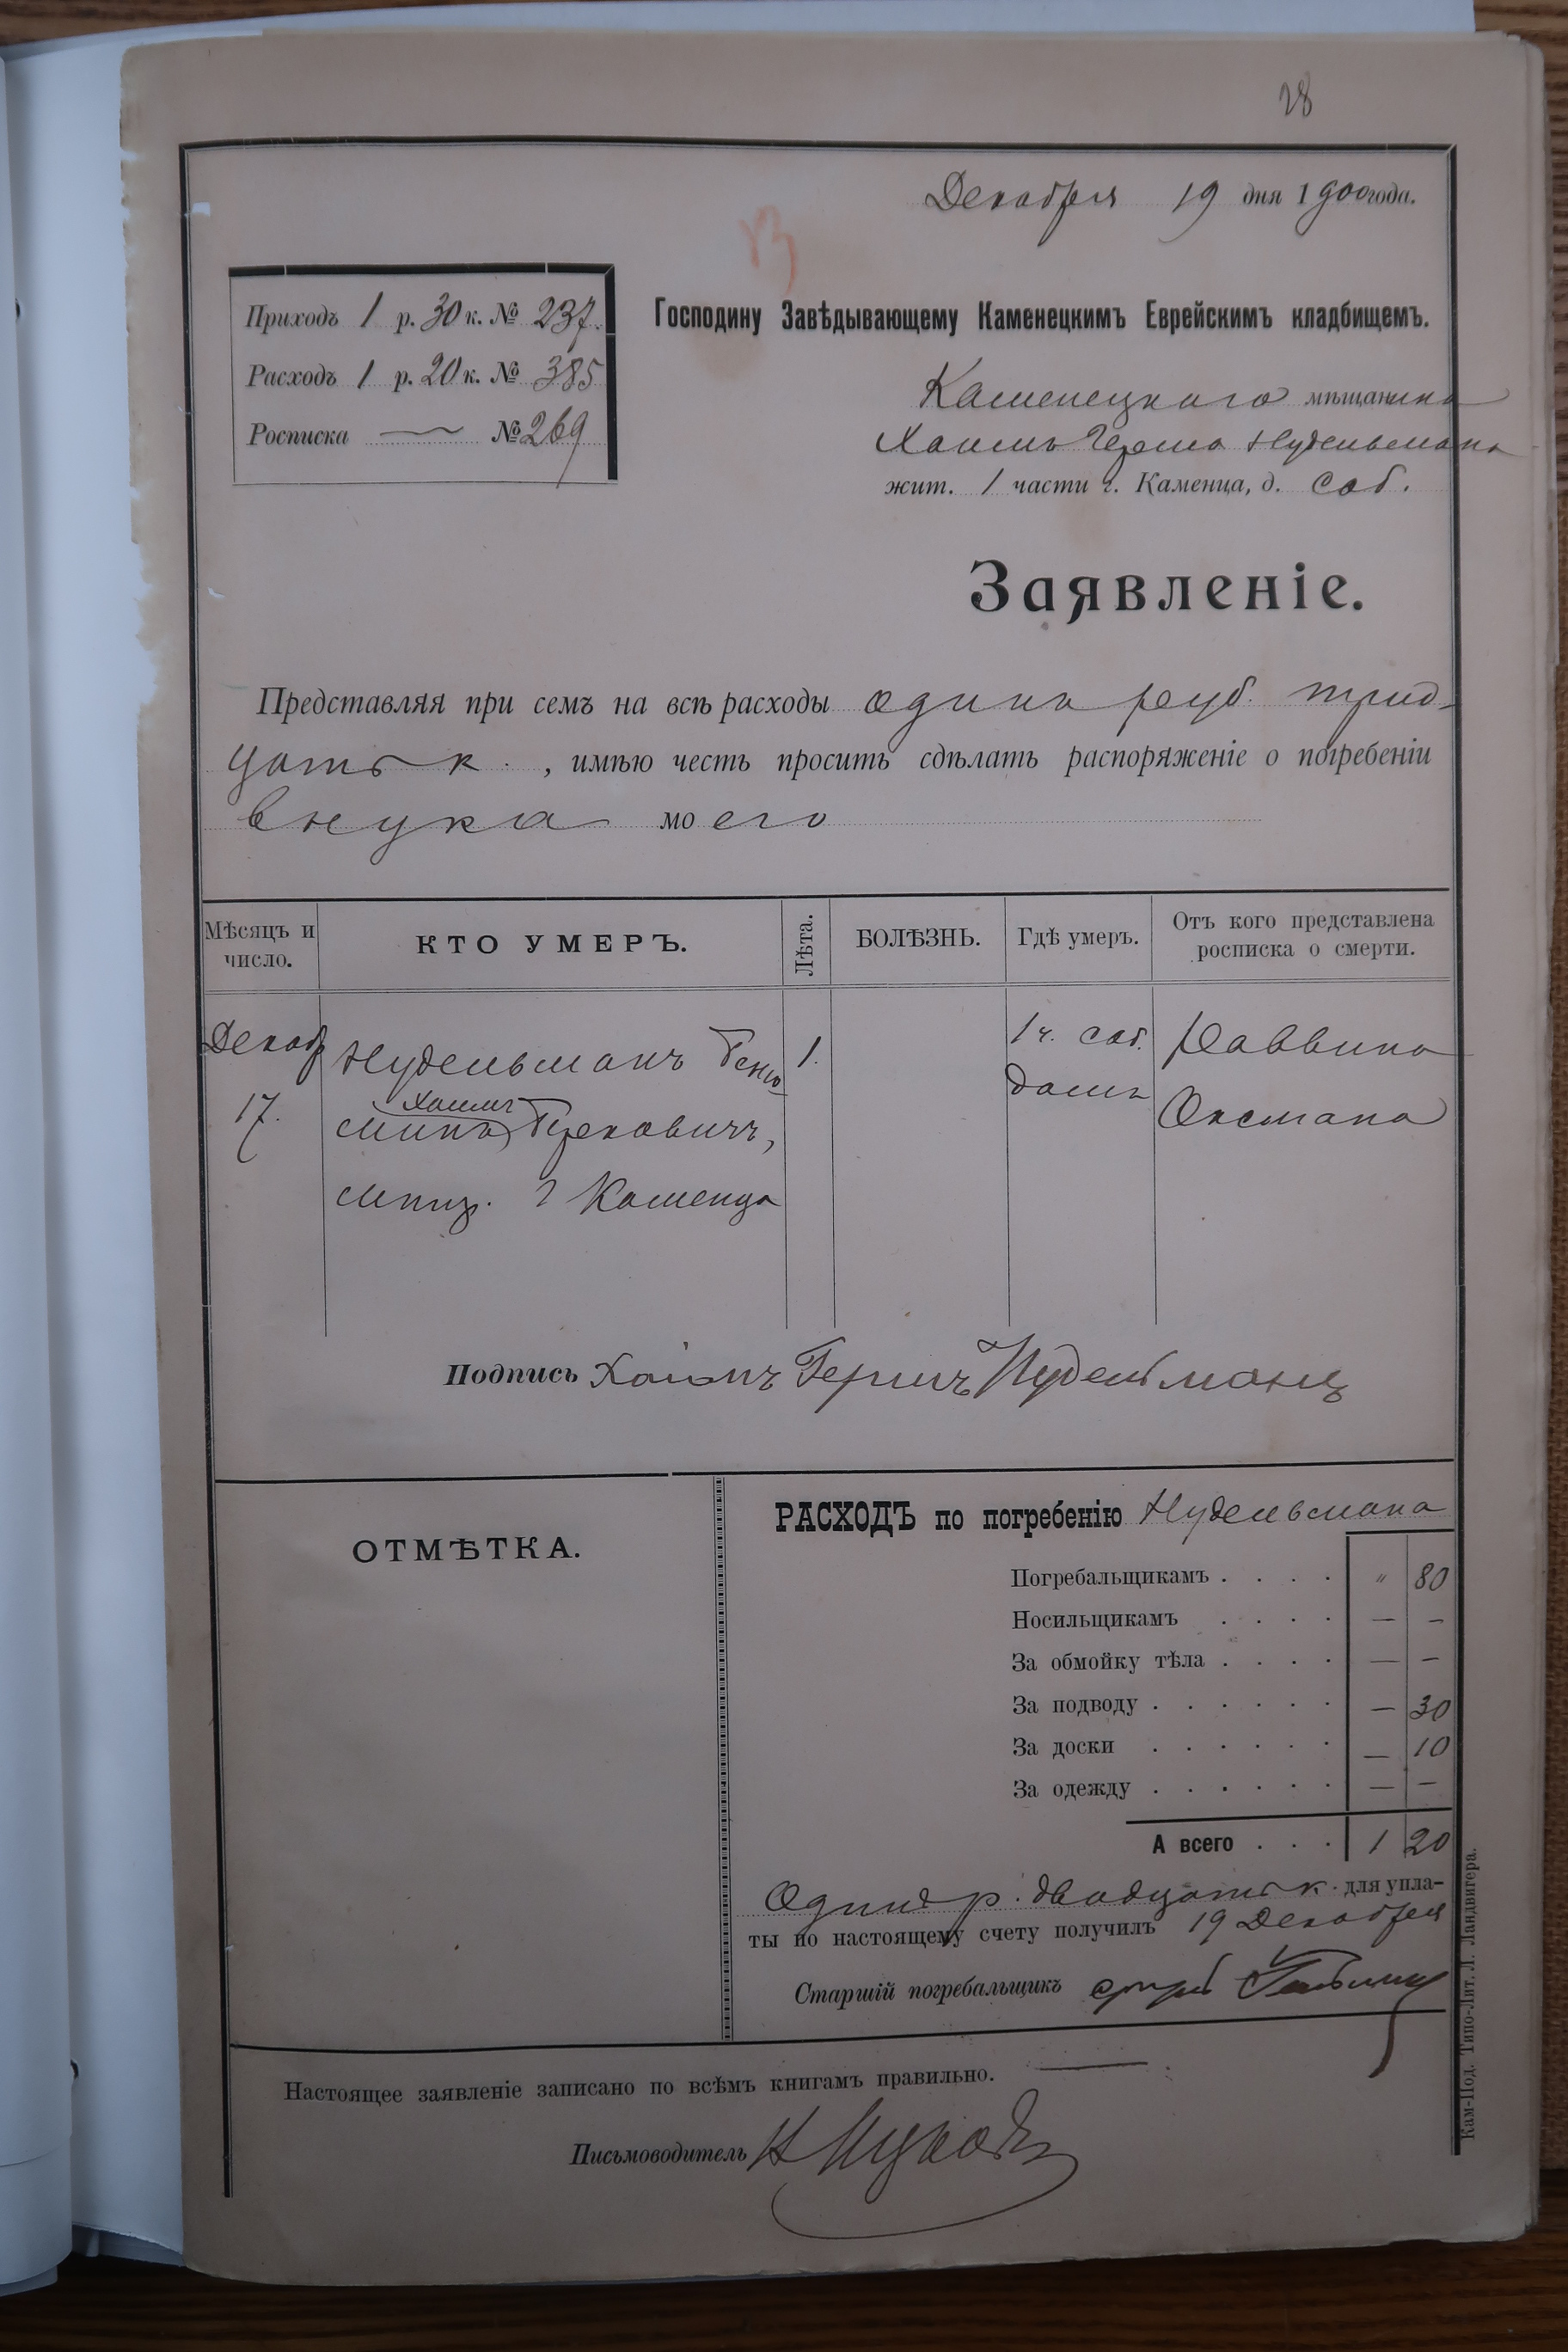 28
Декабря 19 дня 1900 года.
Приходъ 1 р. 30 к. № 237.
Расходъ 1 р. 20 к. № 385
Росписка — № 269
Господину Завѣдывающему Каменецкимъ Еврейскимъ кладбищемъ.
Каменецкаго мѣщанина
Хаимъ Герша Нудельмана
жит. 1 части г. Каменца, д. соб.
Заявленіе.
Представляя при семъ на всѣ расходы одинъ руб. трид-
цать к., имѣю честь просить сдѣлать распоряженіе о погребеніи
внука моего
Мѣсяцъ и число.
КТО УМЕРЪ.
Лѣта.
БОЛѢЗНЬ.
Гдѣ умеръ.
Отъ кого представлена
росписка о смерти.
Декаб 17.
Нудельманъ Беню-
Хаимъ
минъ Берковичъ,
мѣщ. г Каменца
1.
1 ч. соб.
домъ
Раввина
Оксмана
Подпись Хаимъ Гершъ Нудельманъ
ОТМѢТКА.
РАСХОДЪ по погребенію Нудельмана
Погребальщикамъ . . . . " 80
Носильщикамъ . . . . — –
За обмойку тѣла . . . . — –
За подводу . . . . . . — 30
За доски . . . . . . — 10
За одежду . . . . . . — –
А всего . . . 1 20
Одинъ р. двадцать к. для упла-
ты по настоящему счету получилъ 19 Декабря
Старшій погребальщикъ
Настоящее заявленіе записано по всѣмъ книгамъ правильно.
Письмоводитель
Кам-Под. Типо-Лит. Л. Ландвигера.